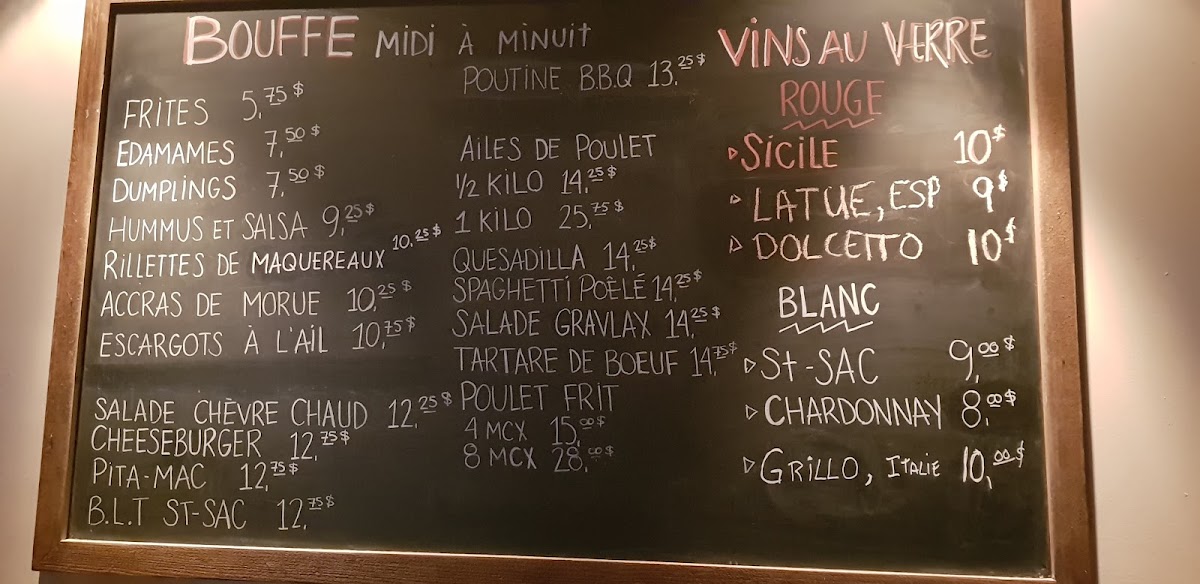 BOUFFE MIDI À MINUIT
FRITES 5,75$
EDAMAMES 7,50$
DUMPLINGS 7,50$
HUMMUS ET SALSA 9,25$
RILLETTES DE MAQUEREAUX 10,25$
ACCRAS DE MORUE 10,25$
ESCARGOTS À L'AIL 10,75$
SALADE CHÈVRE CHAUD 12,25$
CHEESEBURGER 12,75$
PITA-MAC 12,75$
B.L.T ST-SAC 12,75$
POUTINE B.B.Q 13,25$
AILES DE POULET
1/2 KILO 14,25$
1 KILO 25,75$
QUESADILLA 14,25$
SPAGHETTI POÈLÉ 14,25$
SALADE GRAVLAX 14,25$
TARTARE DE BOEUF 14,75$
POULET FRIT
4 MCX 15,00$
8 MCX 28,00$
VINS AU VERRE
ROUGE
▹SICILE 10$
▹LATUE, ESP 9$
▹DOLCETTO 10$
BLANC
▹ST-SAC 9,00$
▹CHARDONNAY 8,00$
▹GRILLO, ITALIE 10,00$